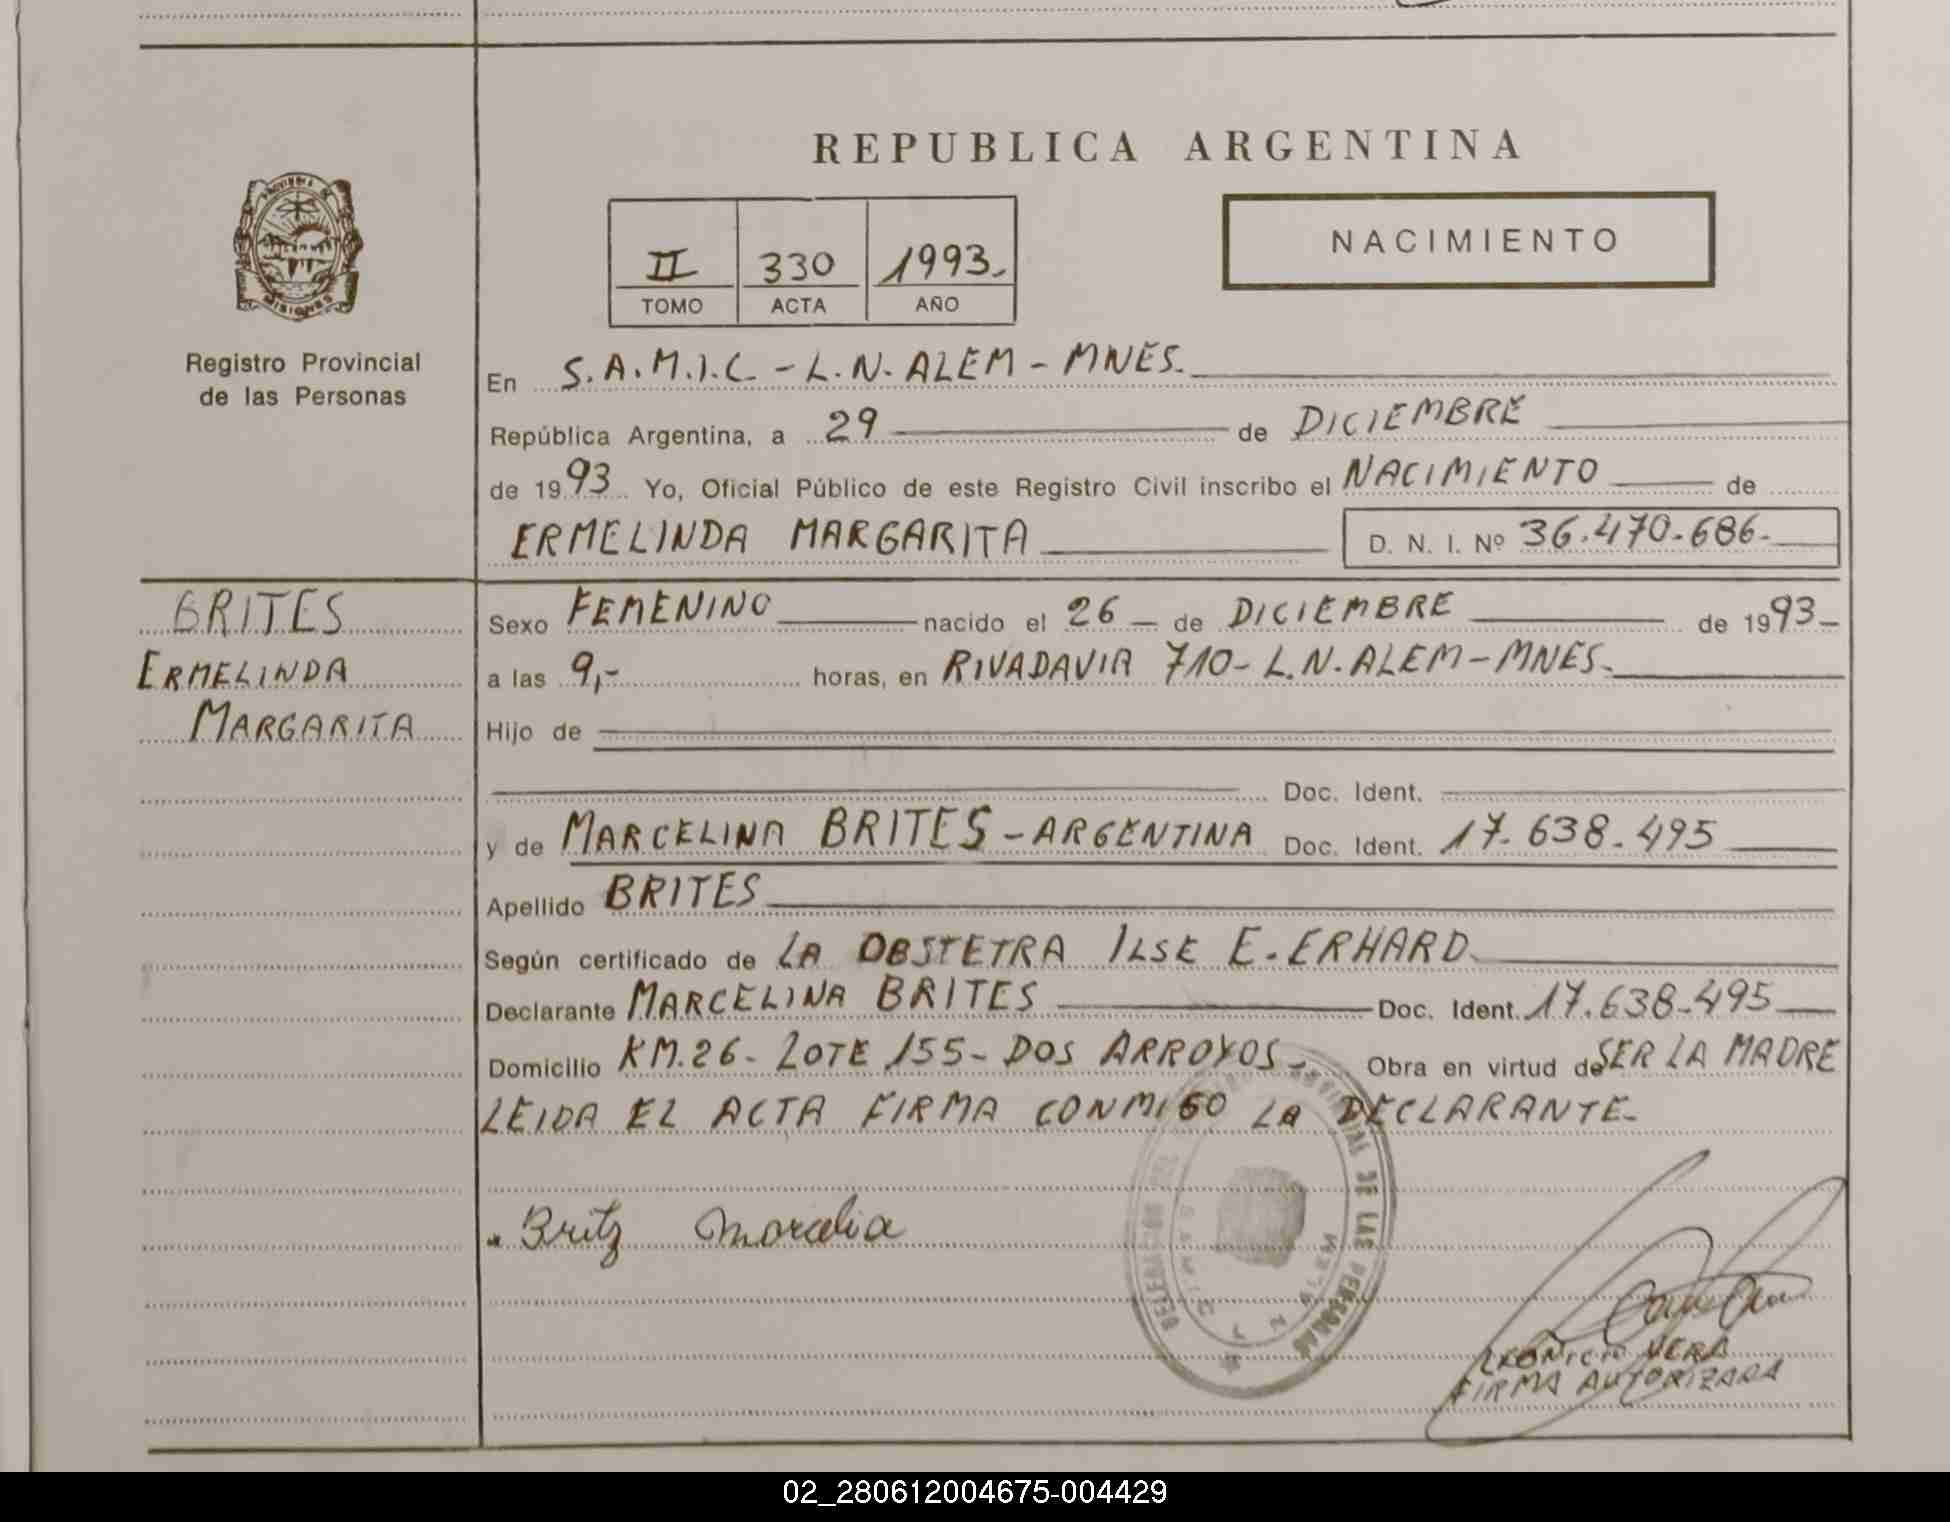 REPUBLICA ARGENTINA
NACIMIENTO
II 330 1993.
TOMO ACTA AÑO
PROVINCIA DE
MISIONES
Registro Provincial
de las Personas
En S.A.M.I.C. - L.N. ALEM - MNES.
República Argentina, a 29 de DICIEMBRE
de 1993 Yo, Oficial Público de este Registro Civil inscribo el NACIMIENTO de
ERMELINDA MARGARITA D. N. I. Nº 36.470.686.
BRITES
ERMELINDA
MARGARITA
Sexo FEMENINO nacido el 26 de DICIEMBRE de 1993
a las 9,- horas, en RIVADAVIA 710- L.N. ALEM-MNES.
Hijo de
Doc. Ident.
y de MARCELINA BRITES - ARGENTINA Doc. Ident. 17.638.495
Apellido BRITES
Según certificado de LA OBSTETRA ILSE E. ERHARD
Declarante MARCELINA BRITES Doc. Ident. 17.638.495
Domicilio KM.26- LOTE 155- DOS ARROYOS- Obra en virtud de SER LA MADRE
LEIDA EL ACTA FIRMA CONMIGO LA DECLARANTE-
Britz
DELEGACION DEL REGISTRO PROVINCIAL DE LAS PERSONAS
L N ALEM
VERA
FIRMA AUTORIZADA
02_280612004675-004429